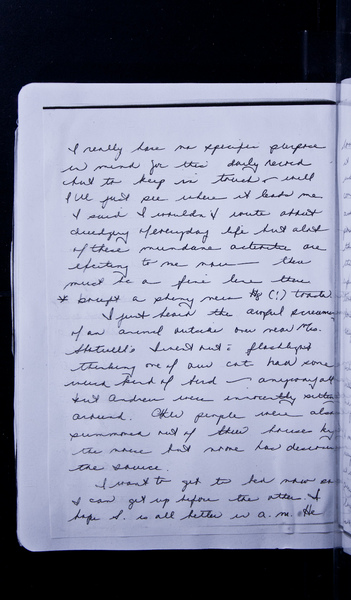 I really have no specific purpose
in mind for this daily record
but to keep in touch - will
I'll just see where it leads me
I said I wouldn't write about
drudgery of everyday life but alot
of these mundane activities are
exciting to me now — there
must be a fine line there
* bought a shiny new (!) toaster
I just heard the awful screaming
of an animal outside over near Mrs.
I went out & flashlight
thinking one of our cat had some
weird kind of bird — anyway all
but Andrew were innocently sitting
around. Other people were also
summoned out of their houses by
the noise but none has
the source.
I want to get to bed now so
I can get up before the other. I
hope S. is all better in a.m. He